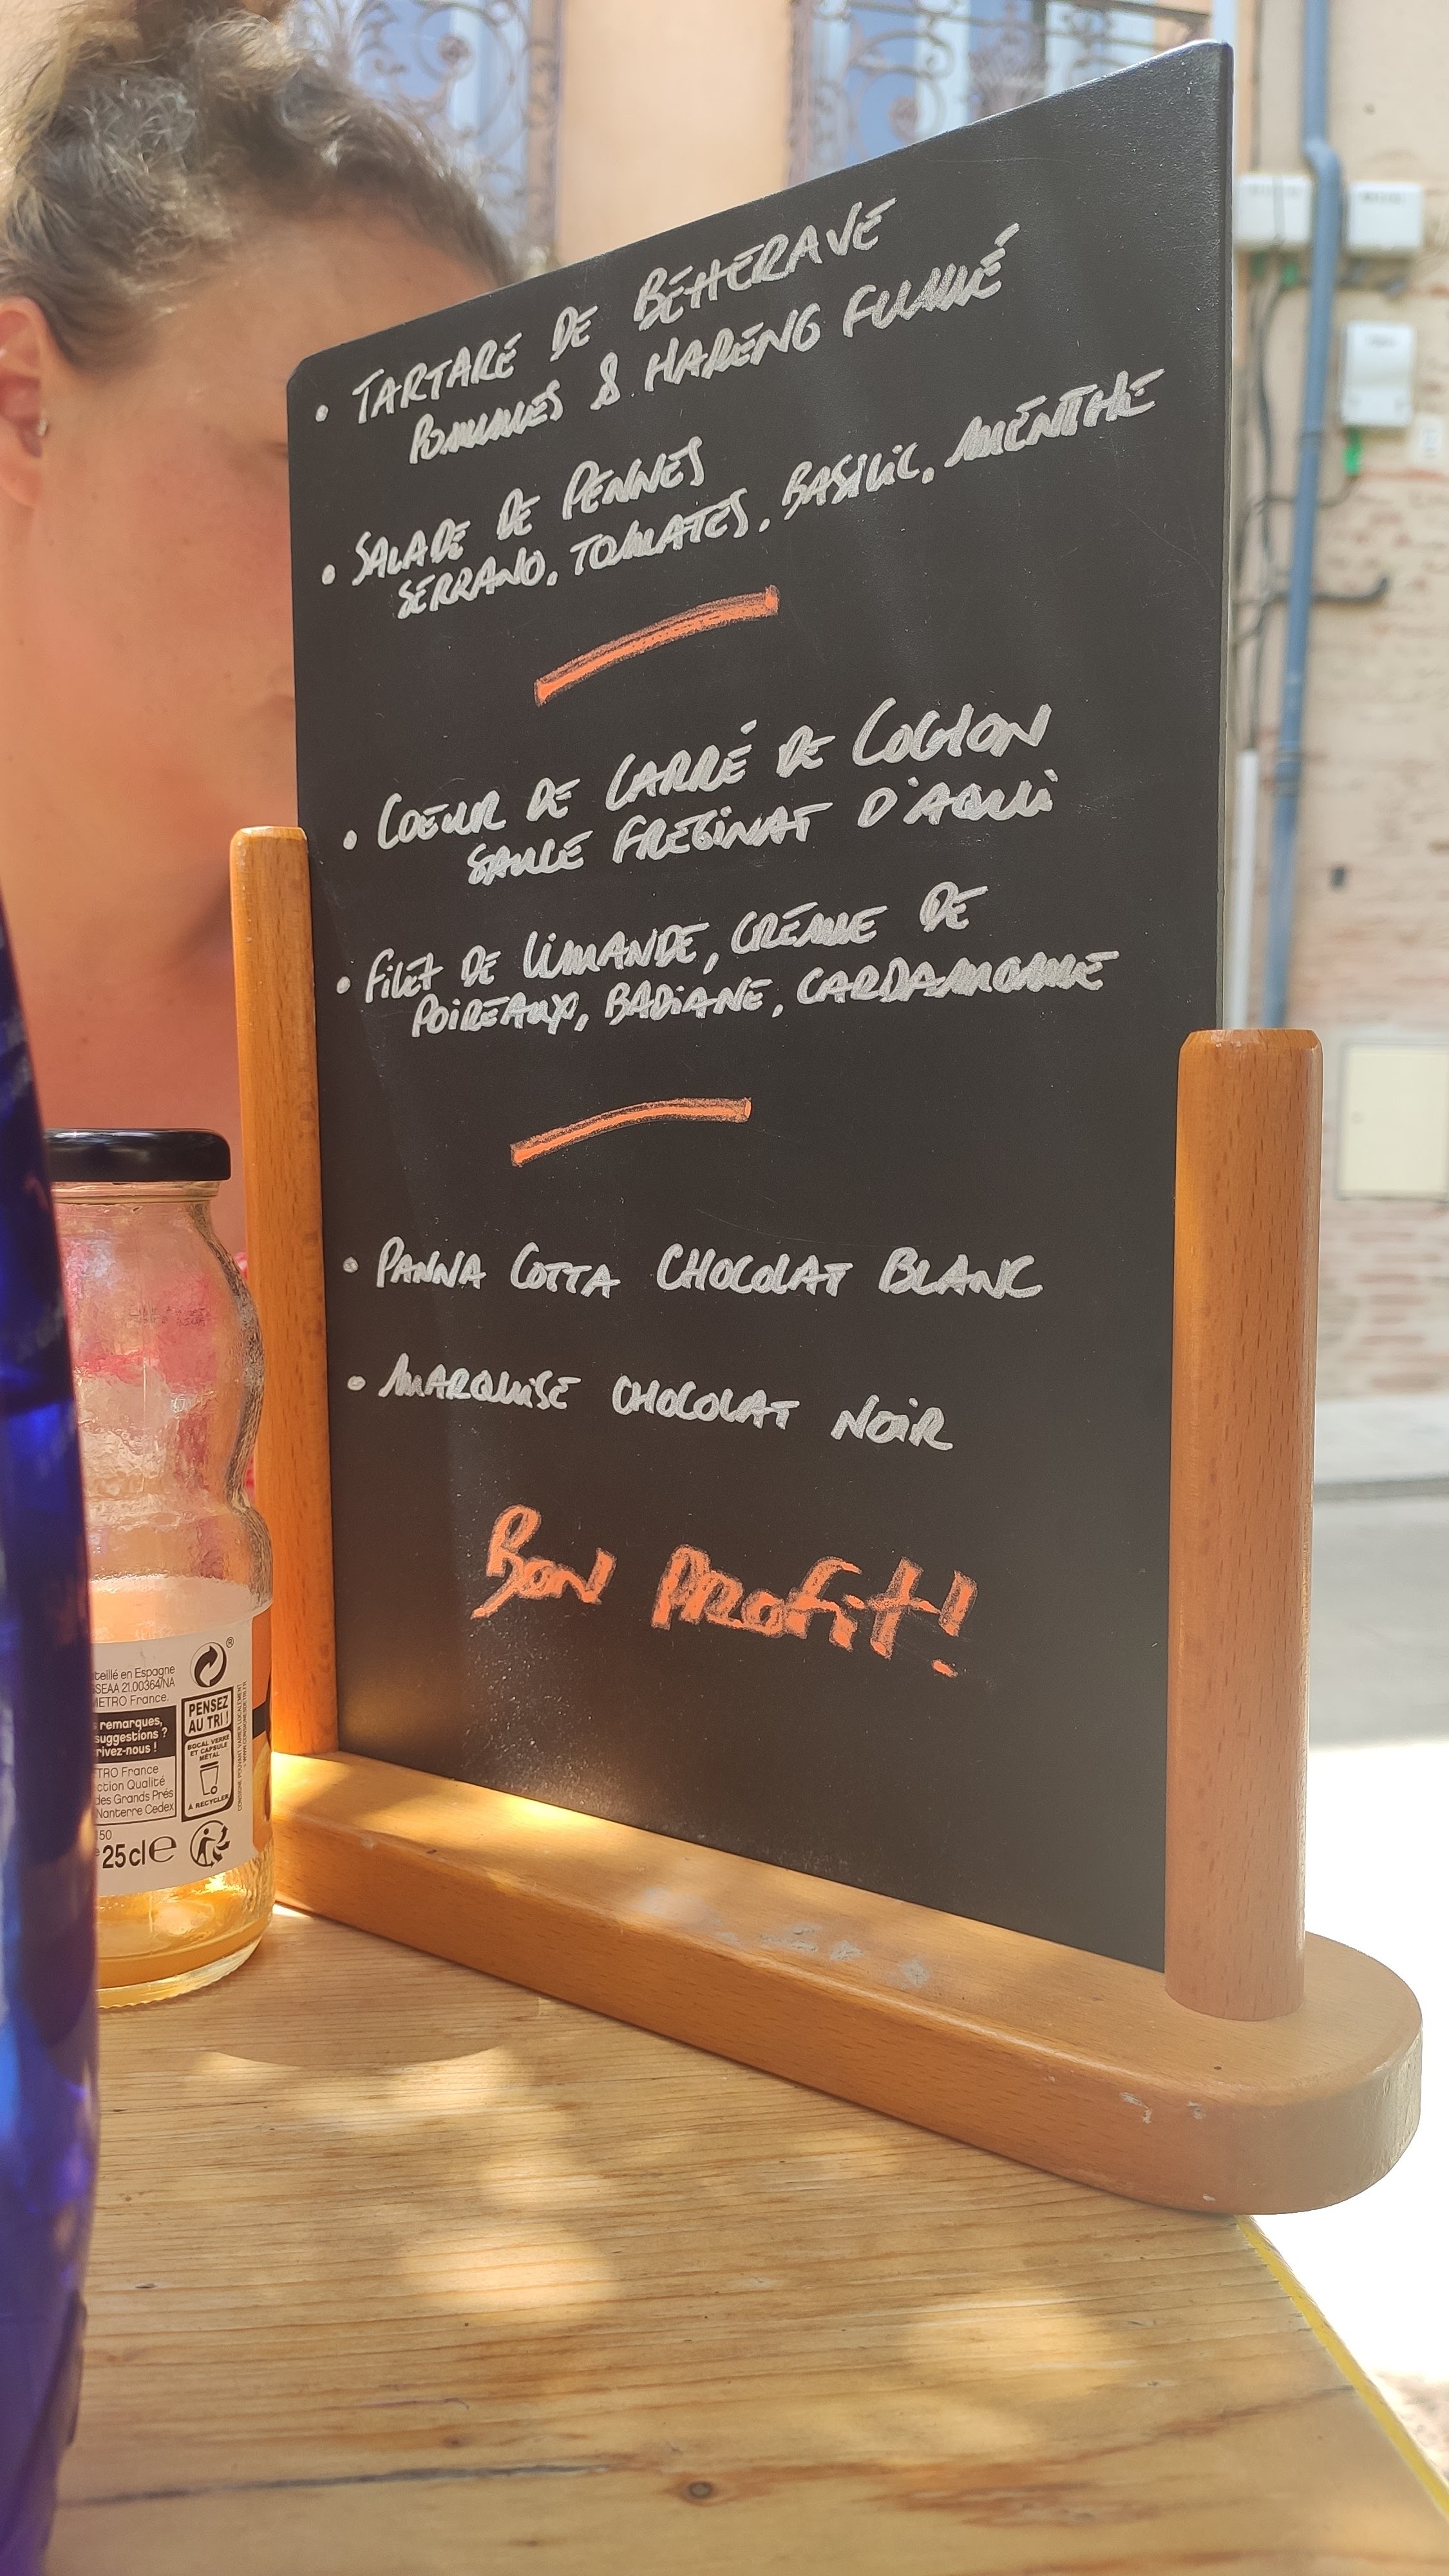 • TARTARE DE BETTERAVE
POMMES & HARENG FUMÉ
• SALADE DE PENNES
SERRANO, TOMATES, BASILIC, MENTHE
• COEUR DE CARRÉ DE COCHON
SAUCE FREGINAT D'AQUI
• FILET DE LIMANDE, CRÉME DE
POIREAUX, BADIANE, CARDAMOME
• PANNA COTTA CHOCOLAT BLANC
• MARQUISE CHOCOLAT NOIR
BON PROFIT!
teillé en Espagne
SSEAA 21.00364/NA
METRO France.
remarques,
suggestions ?
rivez-nous !
TRO France
ction Qualité
des Grands Prés
Nanterre Cedex
150
25cl e
PENSEZ
AU TRI !
BOCAL VERRE
ET CAPSULE
MÉTAL
À RECYCLER